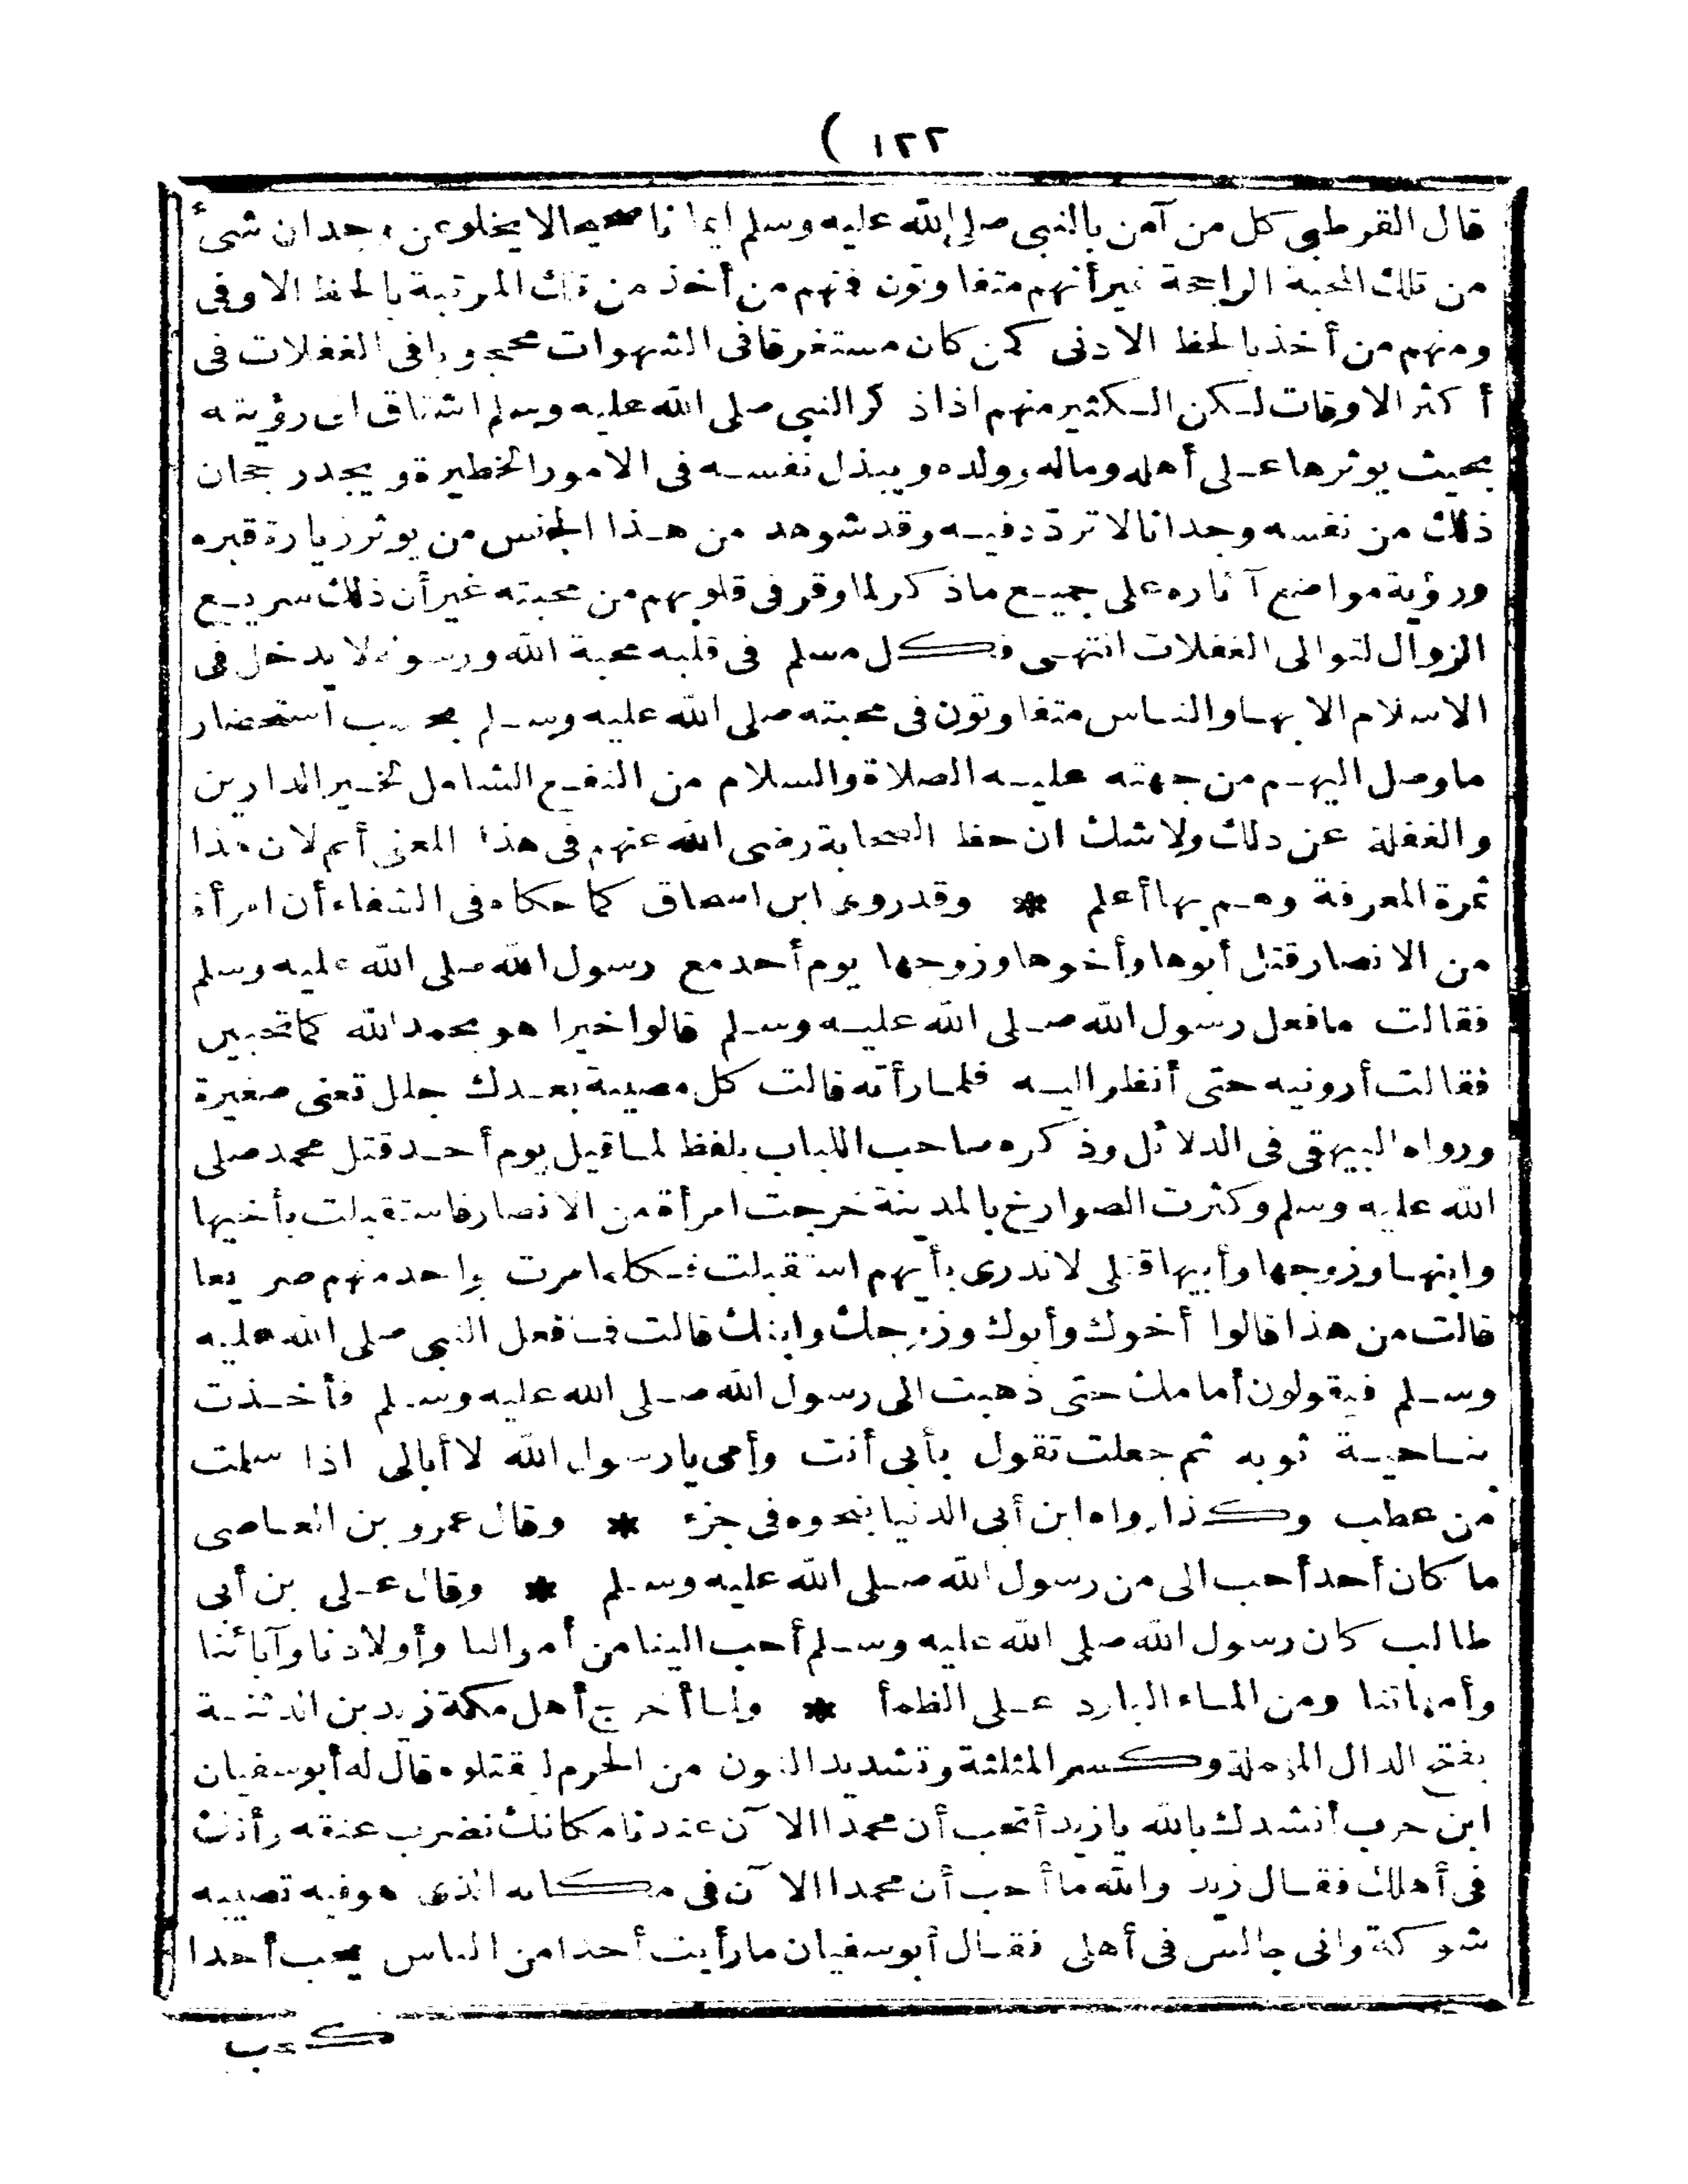 ١٢٢ )
قال القرطبى كل من آمن بالنبى صلى الله عليه وسلم ايمانا صحيحا لا يخلو عن وجدان شئ
من تلك المحبة الراجحة غير أنهم متفاوتون فنهم من أخذ من تلك المرتبة بالحظ الاوفى
ومنهم من أخذ بالحظ الادنى كمن كان مستغرقا فى الشهوات محجوبا فى الغفلات فى
أكثر الاوقات لكن الكثير منهم اذا ذكر النبى صلى الله عليه وسلم اشتاق الى رؤيته
بحيث يوثرها على أهله وماله وولده ويبذل نفسه فى الامور الخطيرة ويجد رجحان
ذلك من نفسه وجدانا لا تردّد فيه وقد شوهد من هذا الجنس من يوثر زيارة قبره
ورؤية مواضع آثاره على جميع ماذكر لما وقر فى قلوبهم من محبته غير أن ذلك سريع
الزوال لتوالى الغفلات انتهى فكل مسلم فى قلبه محبة الله ورسوله لا يدخل فى
الاسلام الا بها والناس متفاوتون فى محبته صلى الله عليه وسلم بحسب استحضار
ماوصل اليهم من جهته عليه الصلاة والسلام من النفع الشامل لخير الدارين
والغفلة عن ذلك ولا شك ان حظ الصحابة رضى الله عنهم فى هذا المعنى أتم لان هذا
ثمرة المعرفة وهم بها أعلم * وقد روى ابن اسحاق كما حكاه فى الشفاء أن امرأة
من الانصار قتل أبوها وأخوها وزوجها يوم أحد مع رسول الله صلى الله عليه وسلم
فقالت مافعل رسول الله صلى الله عليه وسلم قالوا خيرا هو بحمد الله كما تحبين
فقالت أرونيه حتى أنظر اليه فلما رأته قالت كل مصيبة بعدك جلل تعنى صغيرة
ورواه البيهقى فى الدلائل وذكره صاحب اللباب بلفظ لما قيل يوم أحد قتل محمد صلى
الله عليه وسلم وكثرت الصوارخ بالمدينة خرجت امرأة من الانصار فاستقبلت بأخيها
وابنها وزوجها وأبيها قتلى لا تدرى بأيهم استقبلت فكلما مرت بواحد منهم صريعا
قالت من هذا قالوا أخوك وأبوك وزوجك وابنك قالت فما فعل النبى صلى الله عليه
وسلم فيقولون أمامك حتى ذهبت الى رسول الله صلى الله عليه وسلم فأخذت
بناحية ثوبه ثم جعلت تقول بأبى أنت وأمى يارسول الله لا أبالى اذا سلمت
من عطب وكذا رواه ابن أبى الدنيا بنحوه فى جزء * وقال عمرو بن العاصى
ما كان أحد أحب الى من رسول الله صلى الله عليه وسلم * وقال على بن أبى
طالب كان رسول الله صلى الله عليه وسلم أحب الينا من أموالنا وأولادنا وآبائنا
وأمهاتنا ومن الماء البارد على الظمأ * ولما أخرج أهل مكة زيد بن الدثنة
بفتح الدال المهملة وكسر المثلثة وتشديد النون من الحرم ليقتلوه قال له أبوسفيان
ابن حرب أنشدك بالله يازيد أتحب أن محمدا الآن عندنا مكانك نضرب عنقه وأنت
فى أهلك فقال زيد والله ما أحب أن محمدا الآن فى مكانه الذى هو فيه تصيبه
شوكة وانى جالس فى أهلى فقال أبوسفيان مارأيت أحدا من الناس يحب أحدا
كحب